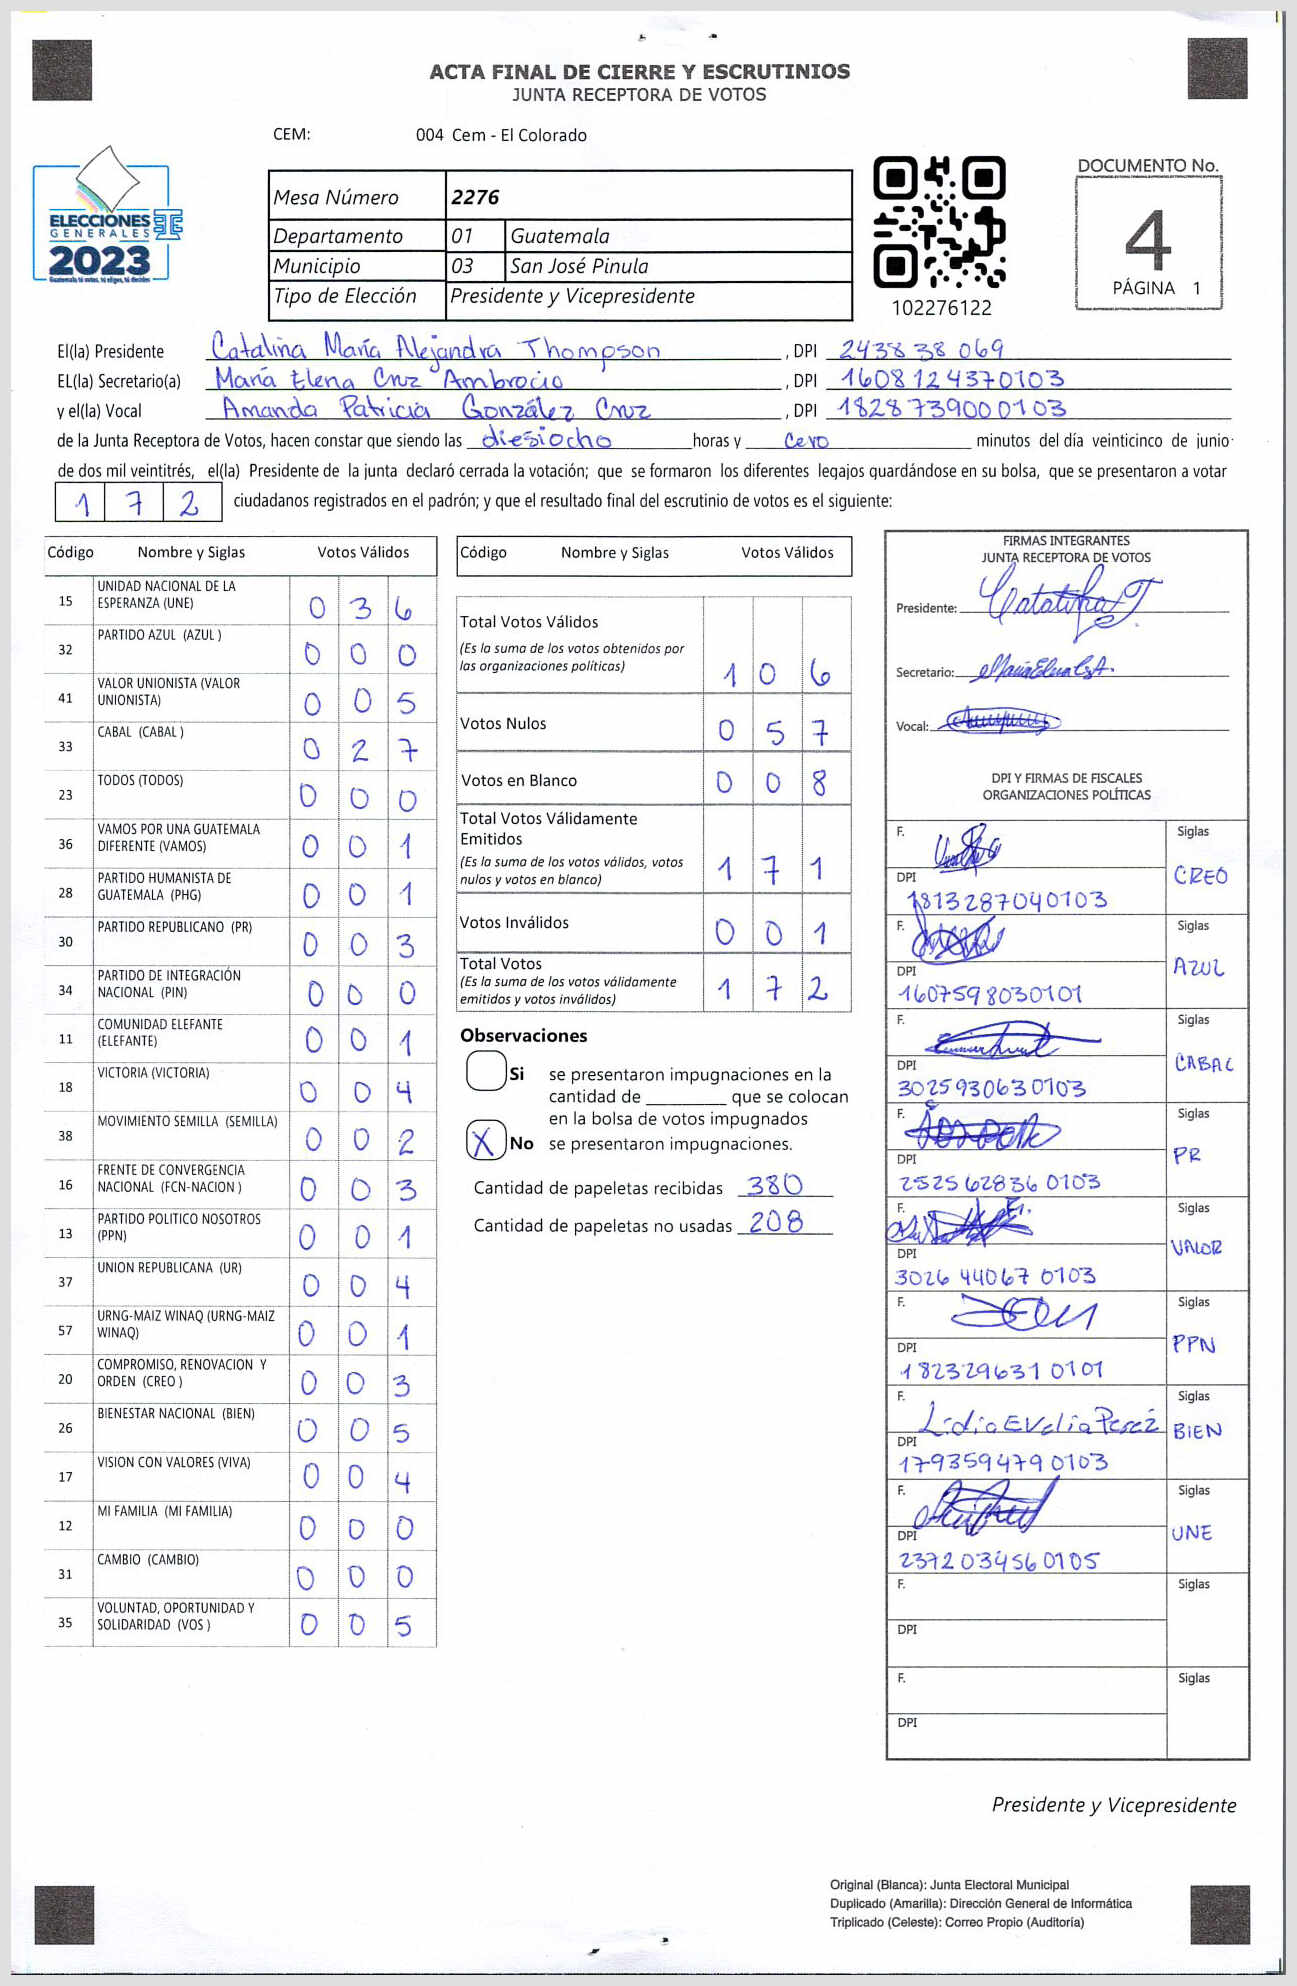 ACTA FINAL DE CIERRE Y ESCRUTINIOS
JUNTA RECEPTORA DE VOTOS
CEM: 004 Cem - El Colorado
ELECCIONES
GENERALES
2023
Mesa Número 2276
Departamento 01 Guatemala
Municipio 03 San José Pinula
Tipo de Elección Presidente y Vicepresidente
102276122
DOCUMENTO No.
4
PÁGINA 1
El(la) Presidente Catalina María Alejandra Thompson, DPI 2438 38 069
EL(la) Secretario(a) María Elena Cruz Ambrocio, DPI 1608124370103
y el(la) Vocal Amanda Patricia González Cruz, DPI 1828739000103
de la Junta Receptora de Votos, hacen constar que siendo las diesiocho horas y cero minutos del día veinticinco de junio
de dos mil veintitrés, el(la) Presidente de la junta declaró cerrada la votación; que se formaron los diferentes legajos guardándose en su bolsa, que se presentaron a votar
1 7 2 ciudadanos registrados en el padrón; y que el resultado final del escrutinio de votos es el siguiente:
Código Nombre y Siglas Votos Válidos
15 UNIDAD NACIONAL DE LA
ESPERANZA (UNE) 0 3 6
32 PARTIDO AZUL (AZUL ) 0 0 0
41 VALOR UNIONISTA (VALOR
UNIONISTA) 0 0 5
33 CABAL (CABAL ) 0 2 7
23 TODOS (TODOS) 0 0 0
36 VAMOS POR UNA GUATEMALA
DIFERENTE (VAMOS) 0 0 1
28 PARTIDO HUMANISTA DE
GUATEMALA (PHG) 0 0 1
30 PARTIDO REPUBLICANO (PR) 0 0 3
34 PARTIDO DE INTEGRACIÓN
NACIONAL (PIN) 0 0 0
11 COMUNIDAD ELEFANTE
(ELEFANTE) 0 0 1
18 VICTORIA (VICTORIA) 0 0 4
38 MOVIMIENTO SEMILLA (SEMILLA) 0 0 2
16 FRENTE DE CONVERGENCIA
NACIONAL (FCN-NACION ) 0 0 3
13 PARTIDO POLITICO NOSOTROS
(PPN) 0 0 1
37 UNION REPUBLICANA (UR) 0 0 4
57 URNG-MAIZ WINAQ (URNG-MAIZ
WINAQ) 0 0 1
20 COMPROMISO, RENOVACION Y
ORDEN (CREO ) 0 0 3
26 BIENESTAR NACIONAL (BIEN) 0 0 5
17 VISION CON VALORES (VIVA) 0 0 4
12 MI FAMILIA (MI FAMILIA) 0 0 0
31 CAMBIO (CAMBIO) 0 0 0
35 VOLUNTAD, OPORTUNIDAD Y
SOLIDARIDAD (VOS ) 0 0 5
Código Nombre y Siglas Votos Válidos
Total Votos Válidos
(Es la suma de los votos obtenidos por
las organizaciones políticas) 1 0 6
Votos Nulos 0 5 7
Votos en Blanco 0 0 8
Total Votos Válidamente
Emitidos
(Es la suma de los votos válidos, votos
nulos y votos en blanco) 1 7 1
Votos Inválidos 0 0 1
Total Votos
(Es la suma de los votos válidamente
emitidos y votos inválidos) 1 7 2
Observaciones
Si se presentaron impugnaciones en la
cantidad de ________ que se colocan
en la bolsa de votos impugnados
X No se presentaron impugnaciones.
Cantidad de papeletas recibidas 380
Cantidad de papeletas no usadas 208
FIRMAS INTEGRANTES
JUNTA RECEPTORA DE VOTOS
Presidente: Catalina T
Secretario: María Elena C.A.
Vocal:
DPI Y FIRMAS DE FISCALES
ORGANIZACIONES POLÍTICAS
F. Siglas
DPI CREO
1813287040103
F. Siglas
DPI AZUL
1607598030101
F. Siglas
DPI CABAL
3025930630103
F. Siglas
DPI PR
2525628360103
F. Siglas
DPI VALOR
3026 44067 0103
F. Siglas
DPI PPN
182329631 0101
F. Lidia Evelia Pereź Siglas
DPI BIEN
1793594790103
F. Siglas
DPI UNE
2372034560105
F. Siglas
DPI
F. Siglas
DPI
Presidente y Vicepresidente
Original (Blanca): Junta Electoral Municipal
Duplicado (Amarilla): Dirección General de Informática
Triplicado (Celeste): Correo Propio (Auditoría)